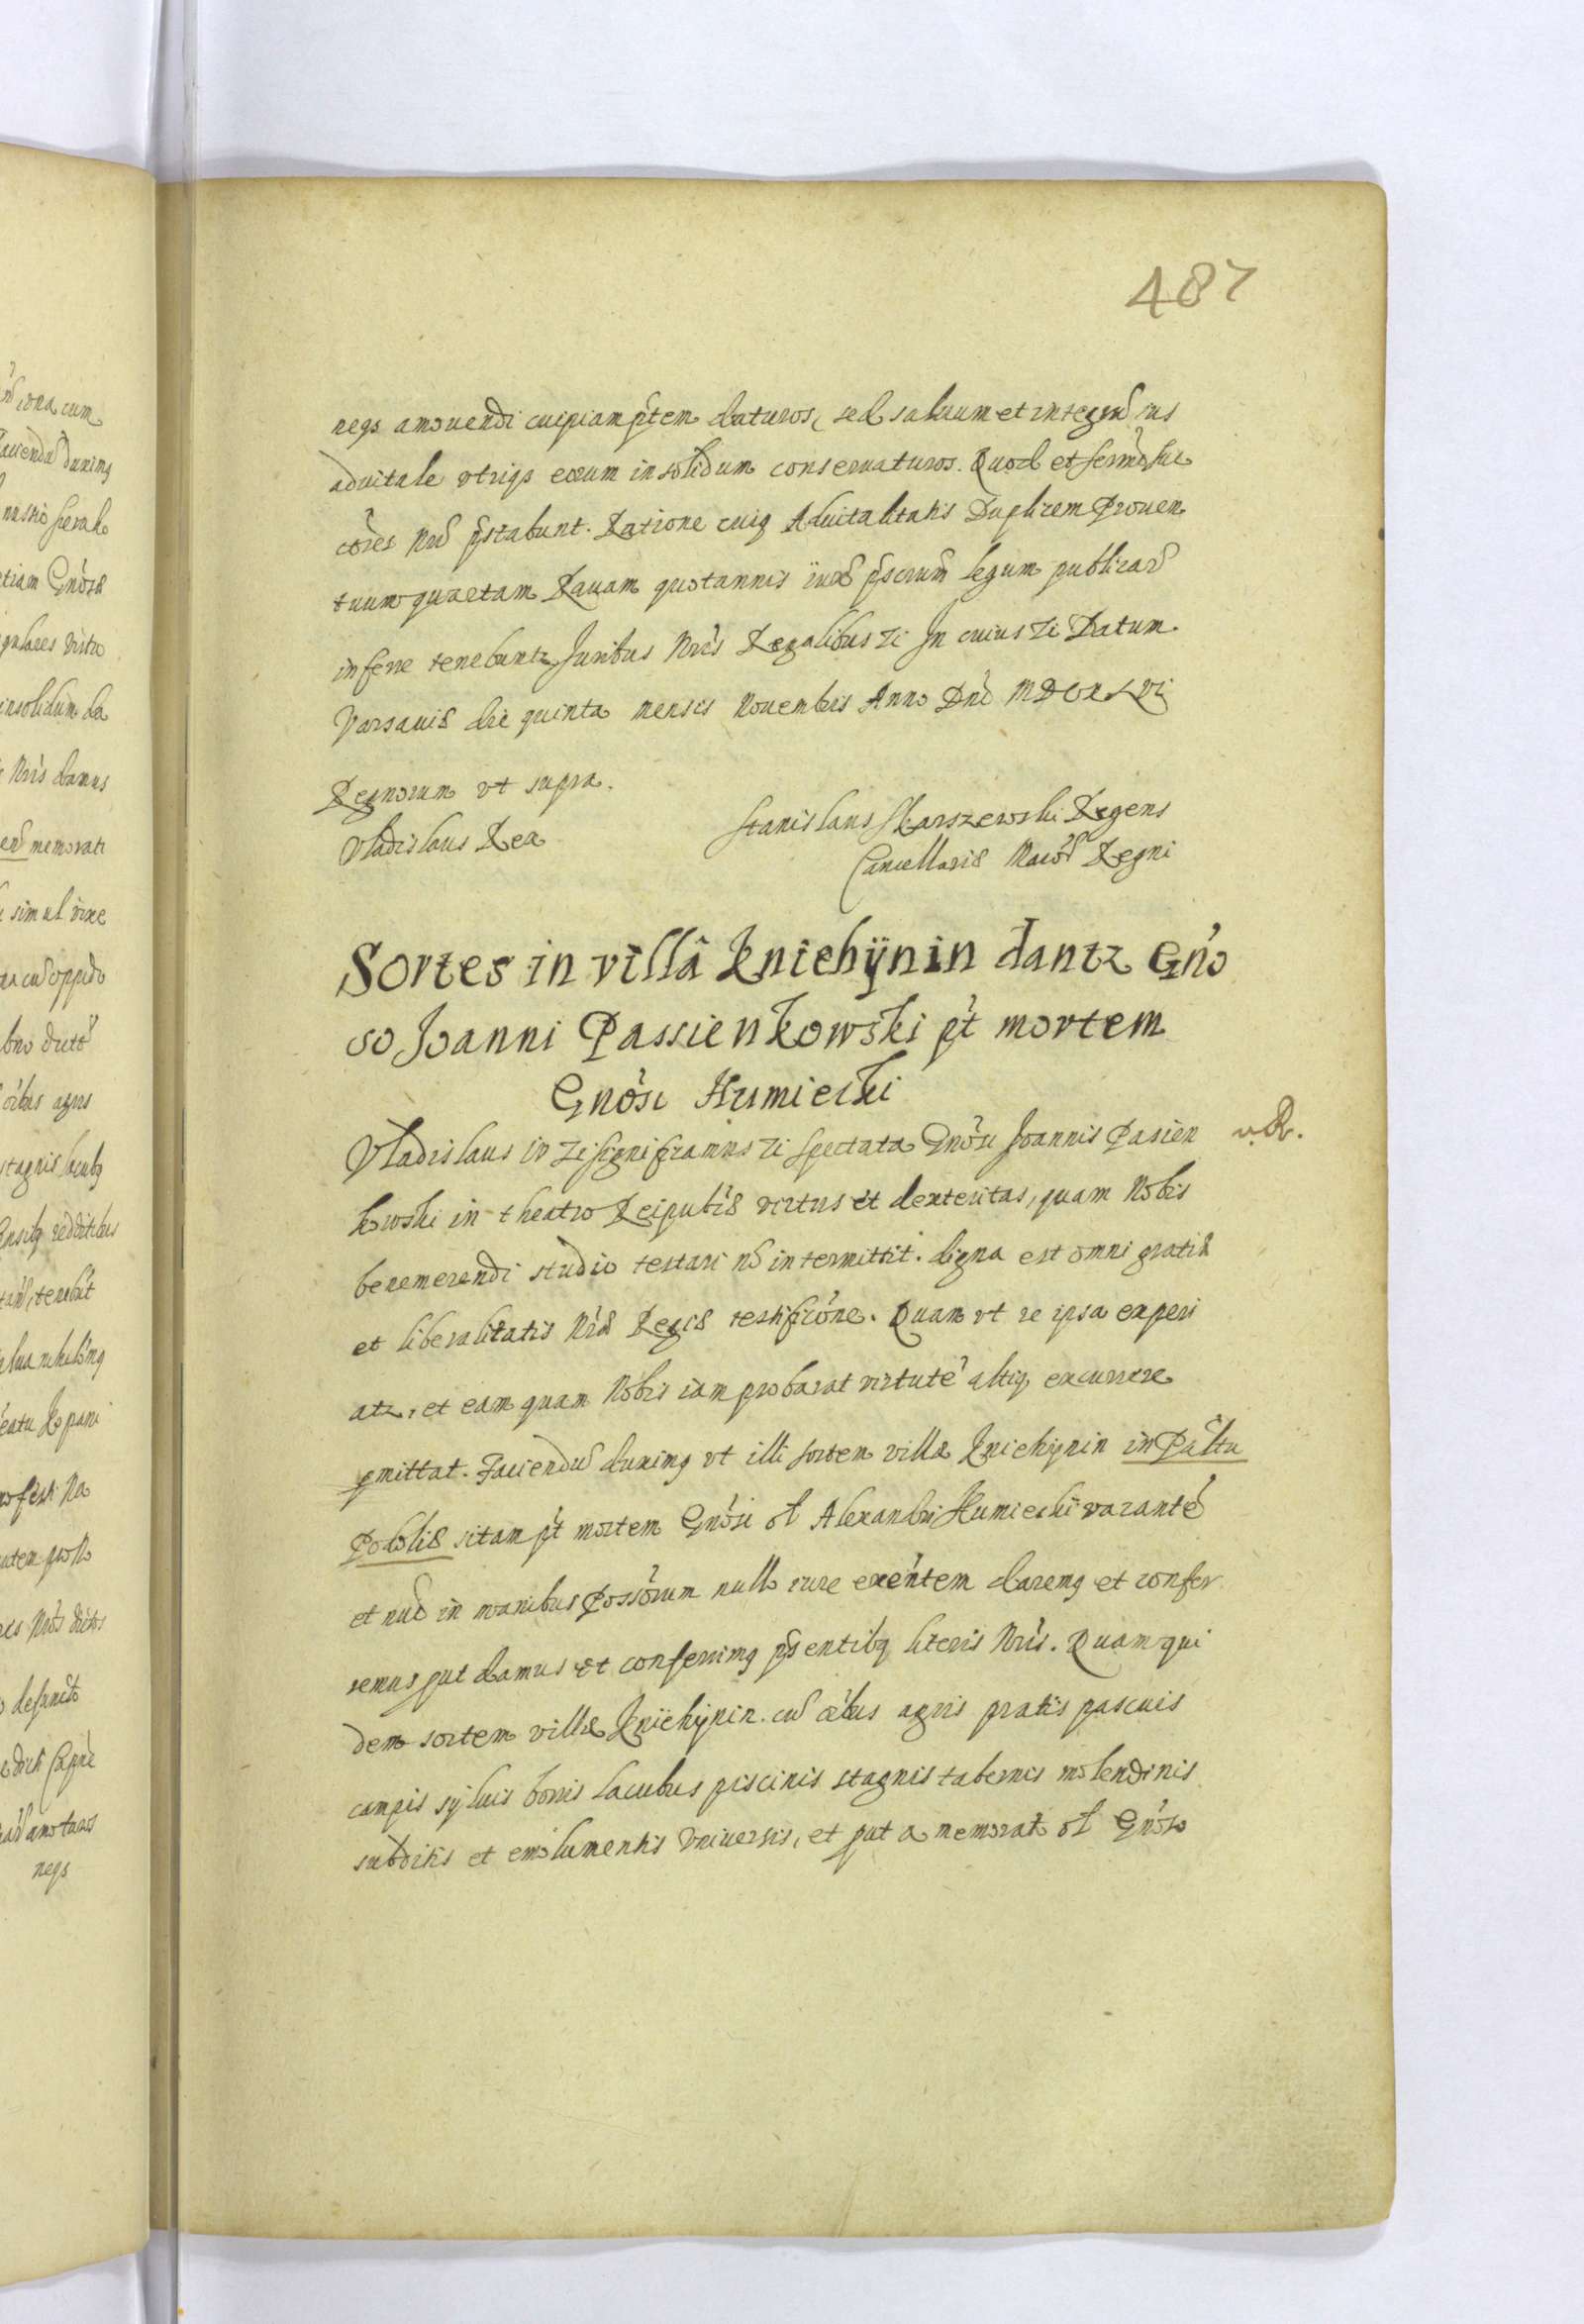 487
neqз amouendi cuipiam p̃tem daturos, sed saluum et integrũ ius
aduitale vtriqз eorum in solidum conseruaturos. Quod et sermi suc
cõres Nrĩ p̃stabunt. Ratione cuiꝗ Aduitalitatis Duplicem Prouen
tuum quartam Rauam quotannis iux̃ p̃scrum legum publicar̃
inferre tenebuntr Juribus Nrĩs Regalibus zĩ In cuius zĩ Datum
Varsauiæ die quinta mensis Nouembris Anno Dnĩ MDCXLVI
Regnorum vt supra.
Vladislaus Rex
Stanislaus Skarszewski Regens
Cancellariæ Maiõr Regni
Sortes in villâ Kniehÿnin dantr Gño
so Joanni Passienkowski p̃t mortem
Gnõsi Humiecki
Vladislaus iv zĩ significamus zĩ Spectata Gnõsi Joannis Pasien
v.R.
kowski in theatro Reipublicæ virtus et dexteritas, quam Nobis
benemerendi studio testari nõ intermittit. digna est omni gratiæ
et liberalitatis Nrẽ Regiæ testificõne. Quam vt re ipsa experi
atr, et eam quam Nobis iam probarat virtutẽ altiꝗ excurrere
p̱mittat. Faciendũ duximꝗ vt illi sortem villæ Kniehÿnin in Pãltu
Podoliæ sitam p̃t mortem Gnõsi ol Alexandri Humiecki vacantẽ
et nũc in manibus Possõrum nullo iure exẽntem daremꝗ et confer
remus put damus et conferimꝗ p̃sentibꝗ literis Nrĩs. Quam qui
dem sortem villæ Kniehÿnin. cũ õibus agris pratis pascuis
campis syluis borris lacubus piscinis stagnis tabernis molendinis
subditis et emolumentis Vniuersis, et put a memorato ol Gnõso